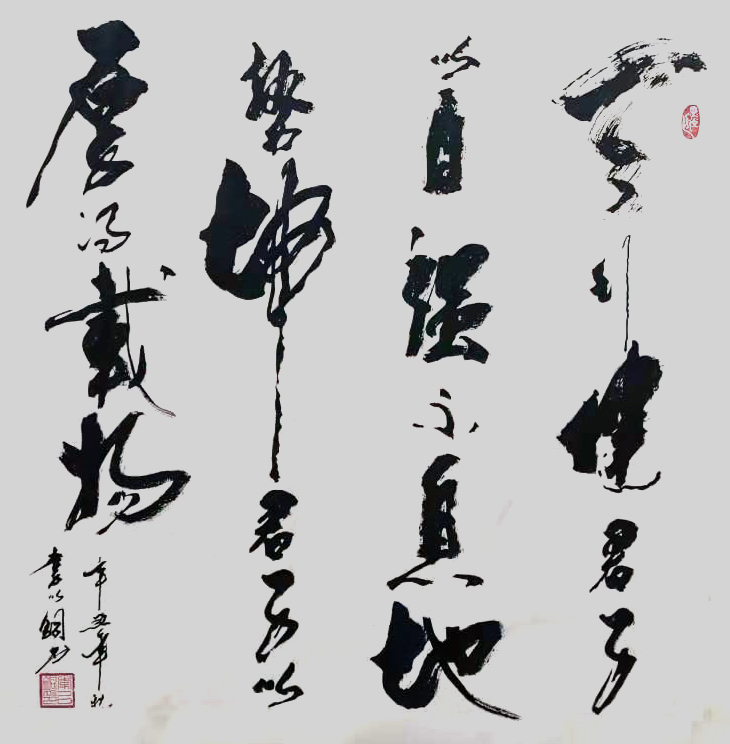 天行健君子
以自强不息地
势坤君子以
厚德载物
辛丑年秋
李以钢书